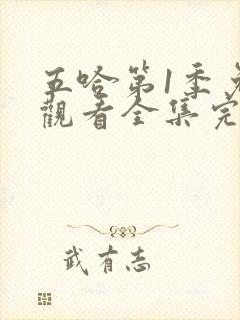 五哈第1季免
觀看全集完
武有志